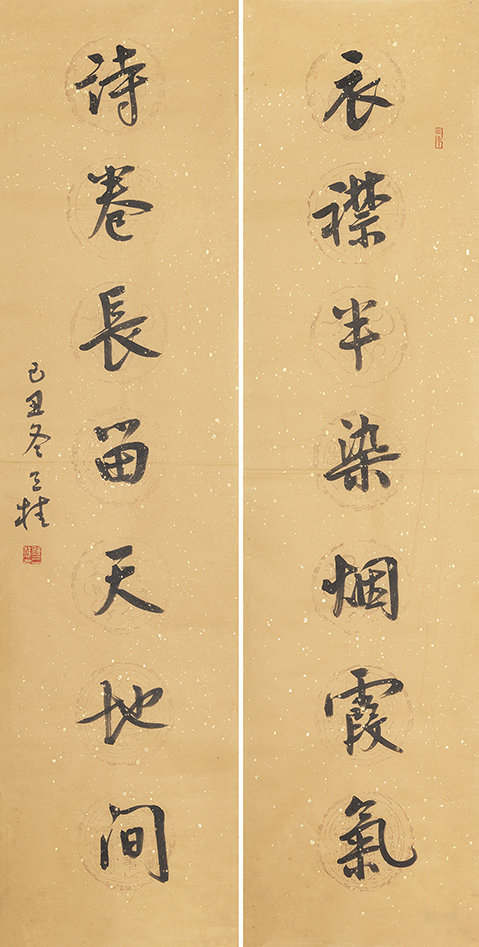 衣襟半染烟霞氣
詩卷長留天地间
己丑冬
桂